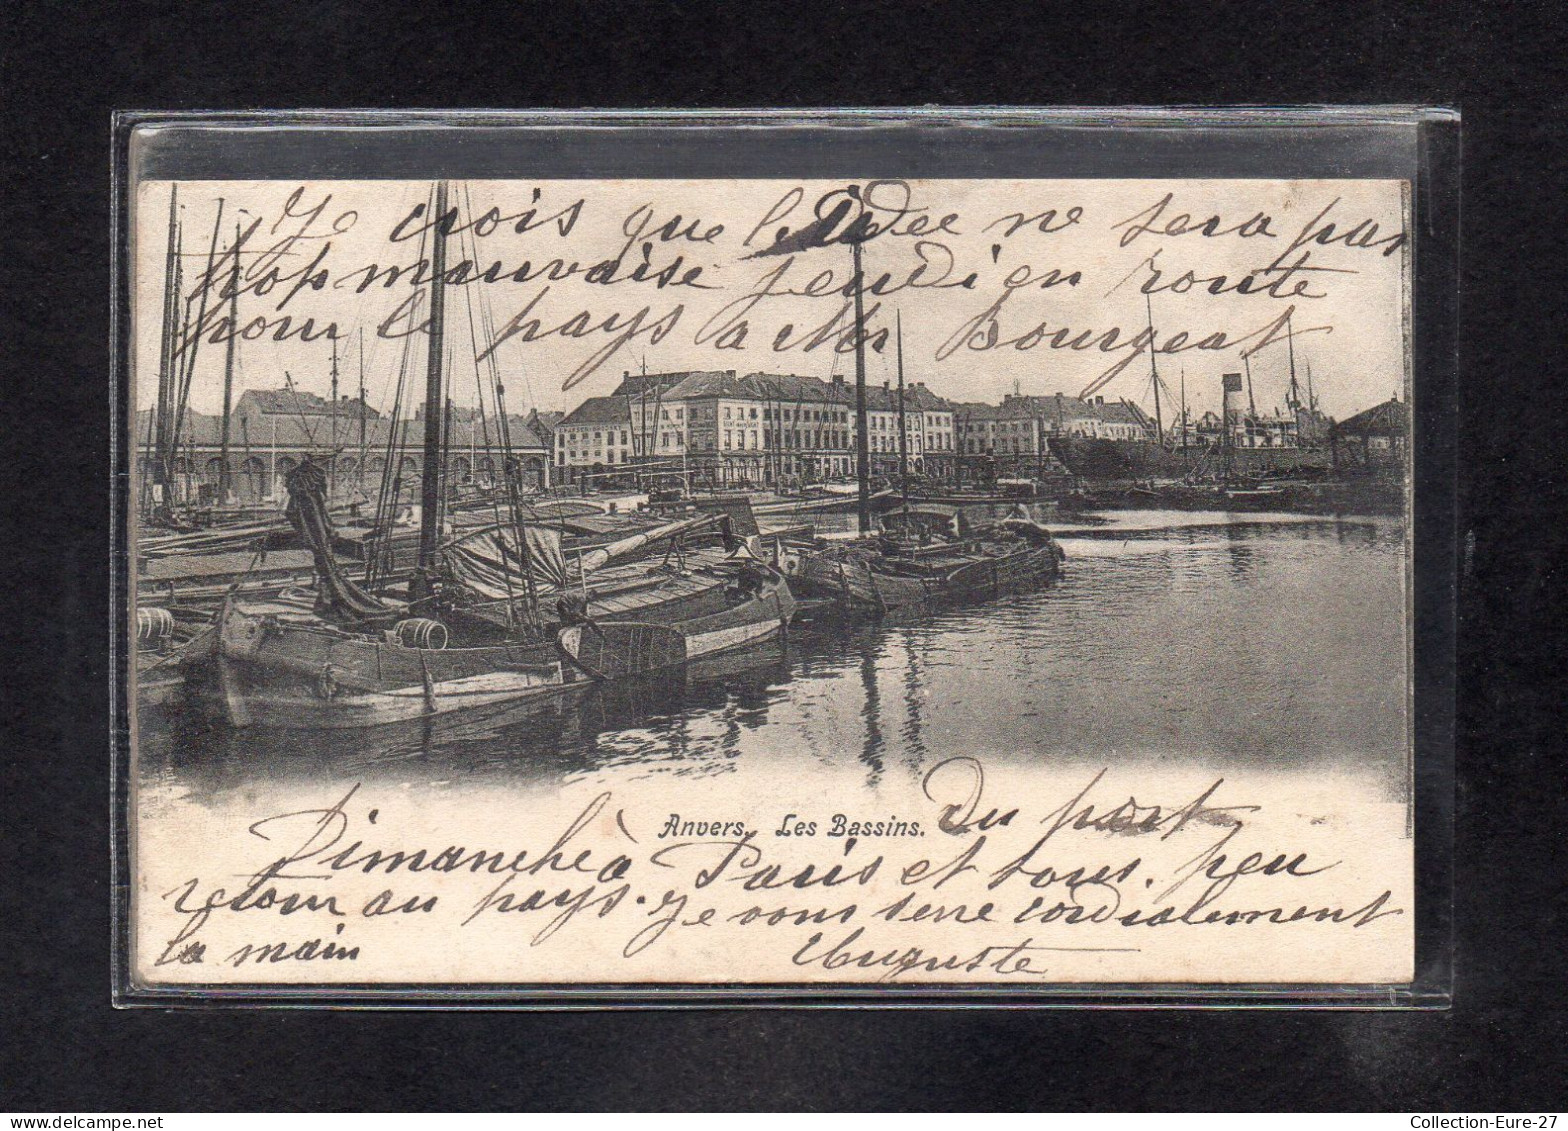 Je crois que l'Idée ne sera pas
trop mauvaise jeudi en route
pour le pays à Mr Bourgeat
Anvers. Les Bassins.
Du part
Dimanche à Paris et tous. peu
retour au pays. Je vous serre cordialement
la main Auguste
Collection-Eure-27